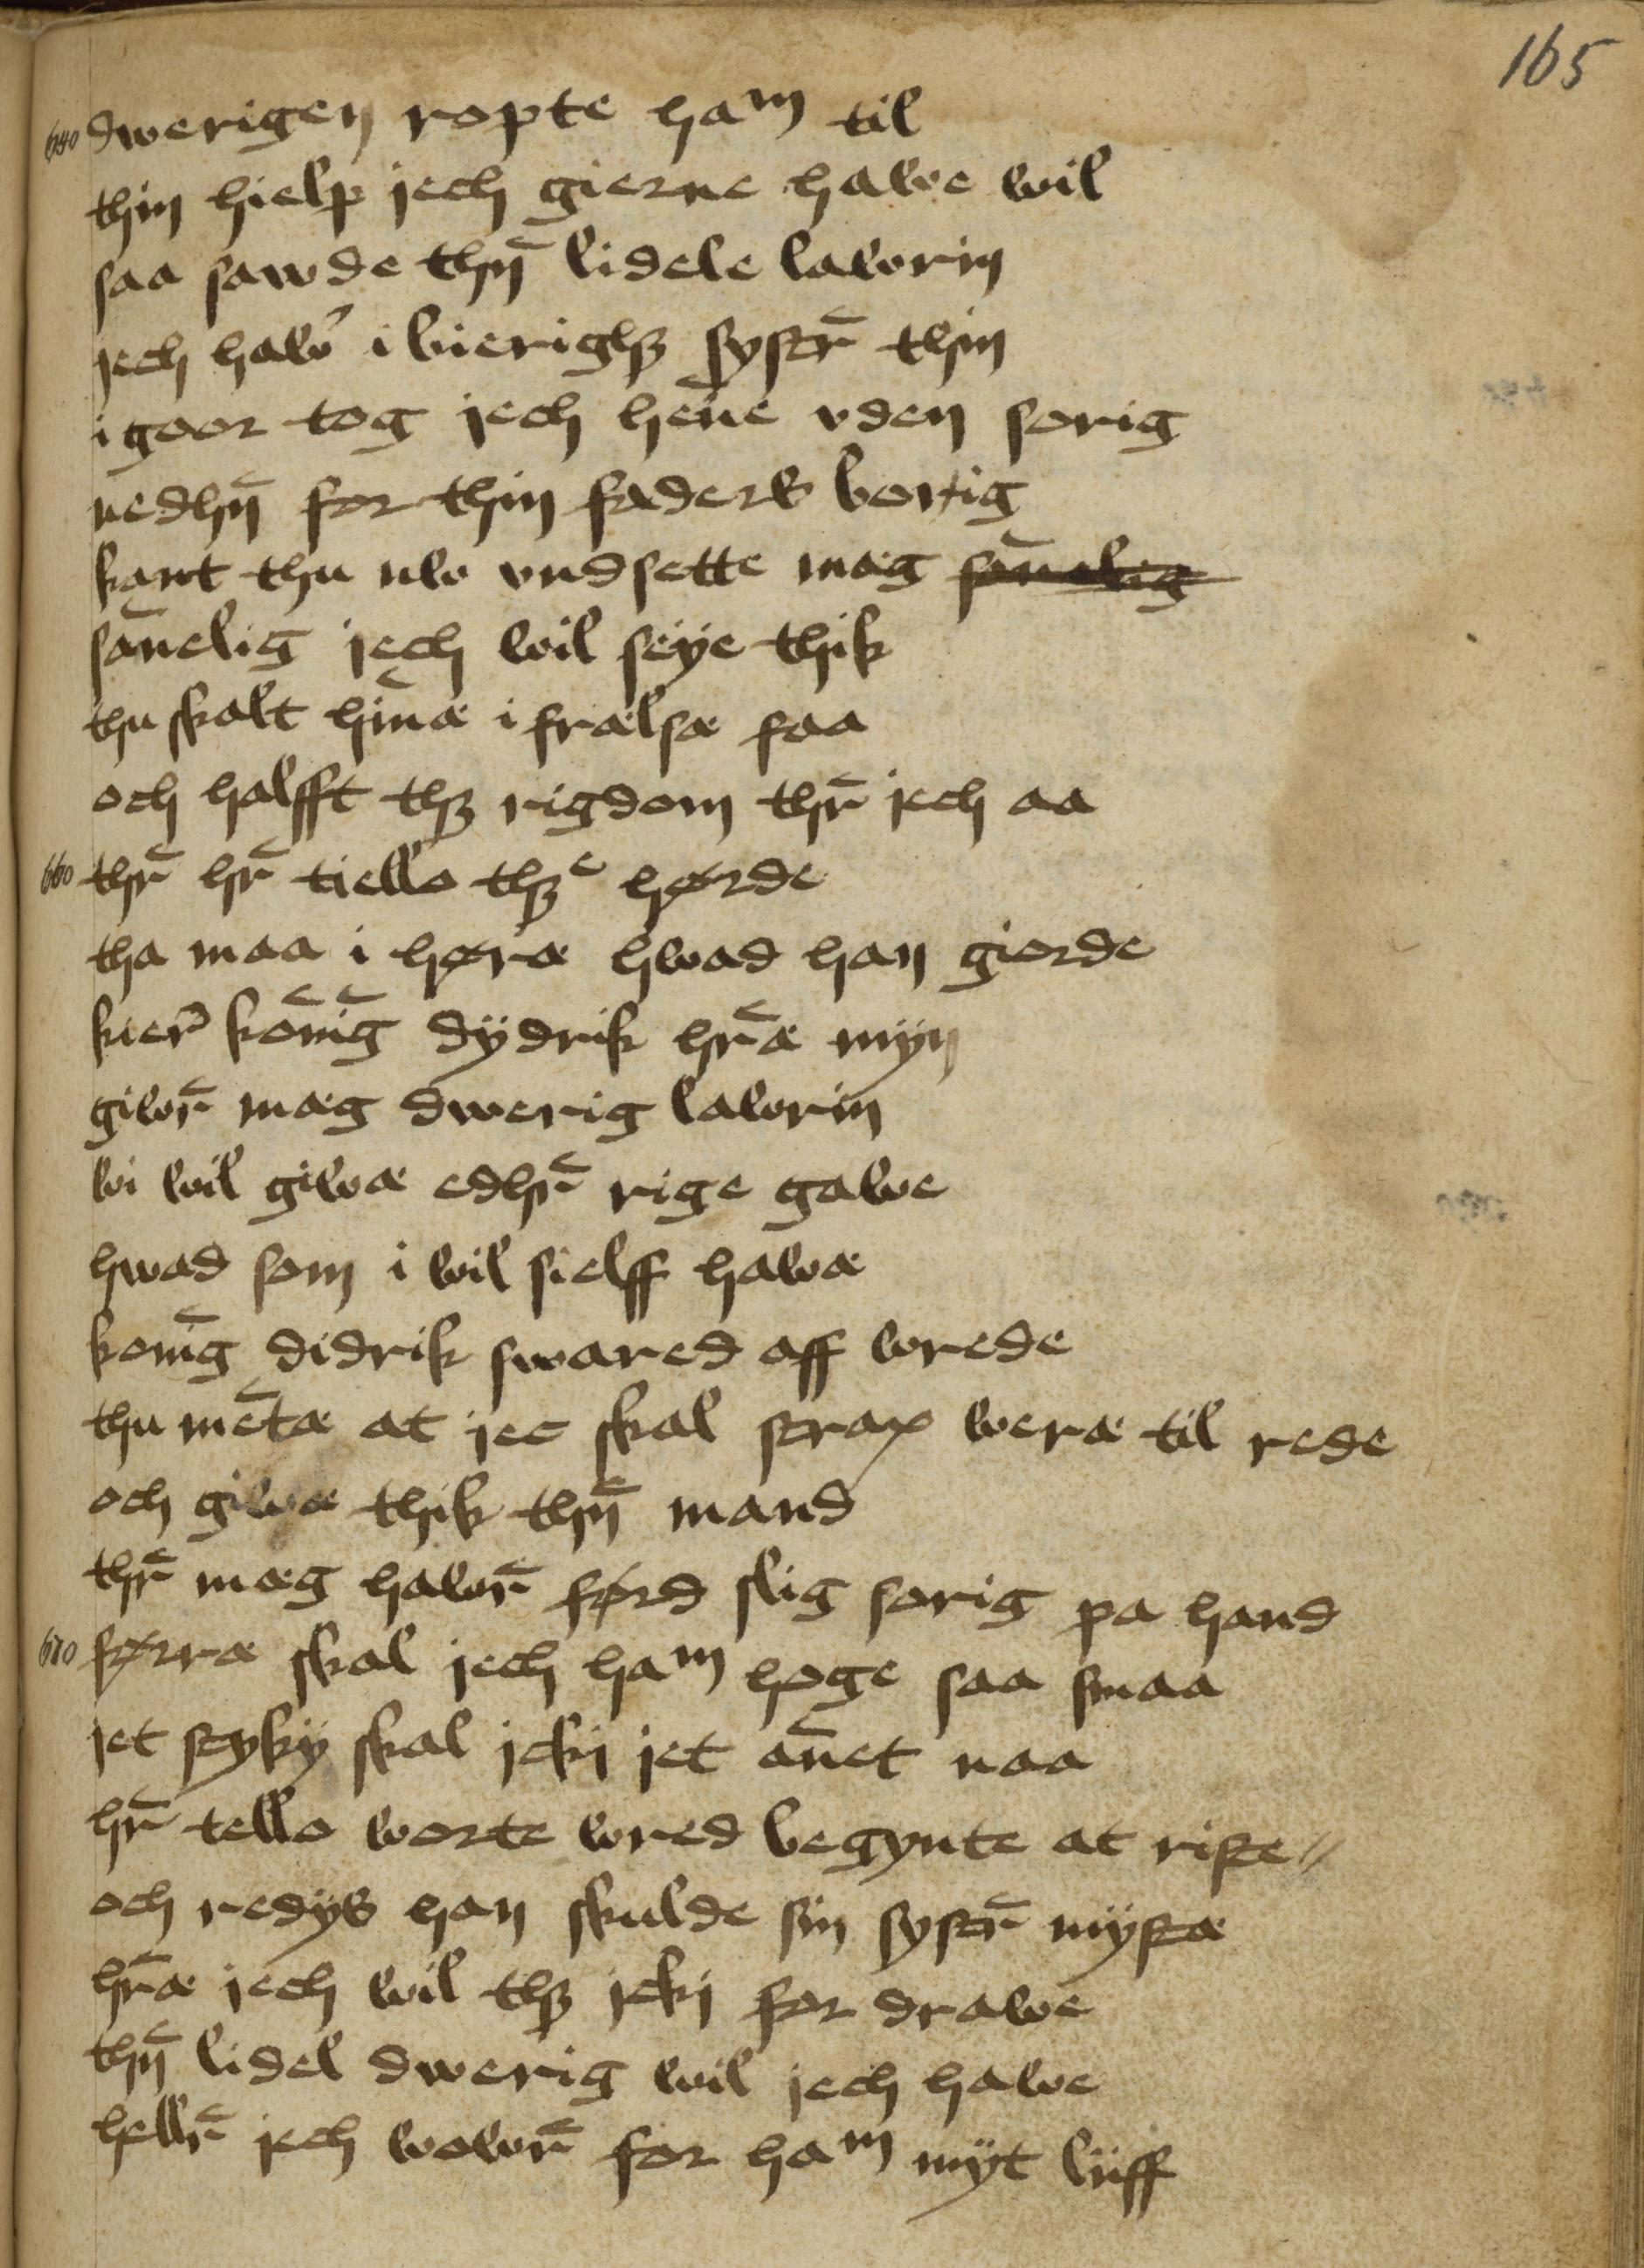 165
640 dwerigen ropte ham til
thin hielp jech gierne hawe wil
saa sawde thn̄ lidele lawrin
jech haw̉ i bierighꝫ systr̄ thin
i goor tog jech hen̄e vden sorig
nedhn̄ for thin faderß borig
kant thu nw vndsette mæg san̄elig
san̄elig jech wil seÿe thik
thu skalt hin̄æ i frælsæ faa
och halfft thꝫ rigdom thr̄ jech aa
660 thr̄ hr̄ tiello thꝫe hørde
tha maa i høræ hwad han giorde
kier̉ kon̄ig dÿdrik hr̄æ mÿn
giwr̄ mæg dwerig lawrin
wi wil giwæ edhr̄ rige gawe
hwad som i wil sielff hawæ
konīg didrik swared aff wrede
thu mētæ at jec skal strax weræ til rede
och giwæ thik thn̄ mand
thr̄ mæg hawr̄førd slig sorig pa hand
670 førræ skal jech ham hoge saa smaa
jet stykÿ skal jckj jet an̄et naa
hr̄ tello worte wred begynte at riste //
och redÿß han skulde sin systr̄ mÿstæ
hr̄æ jech wil thꝫ jckj for drawe
thn̄ lidel dwerig wil jech hawe
hellr̄ jech wowr̄ for ham mÿt lÿff